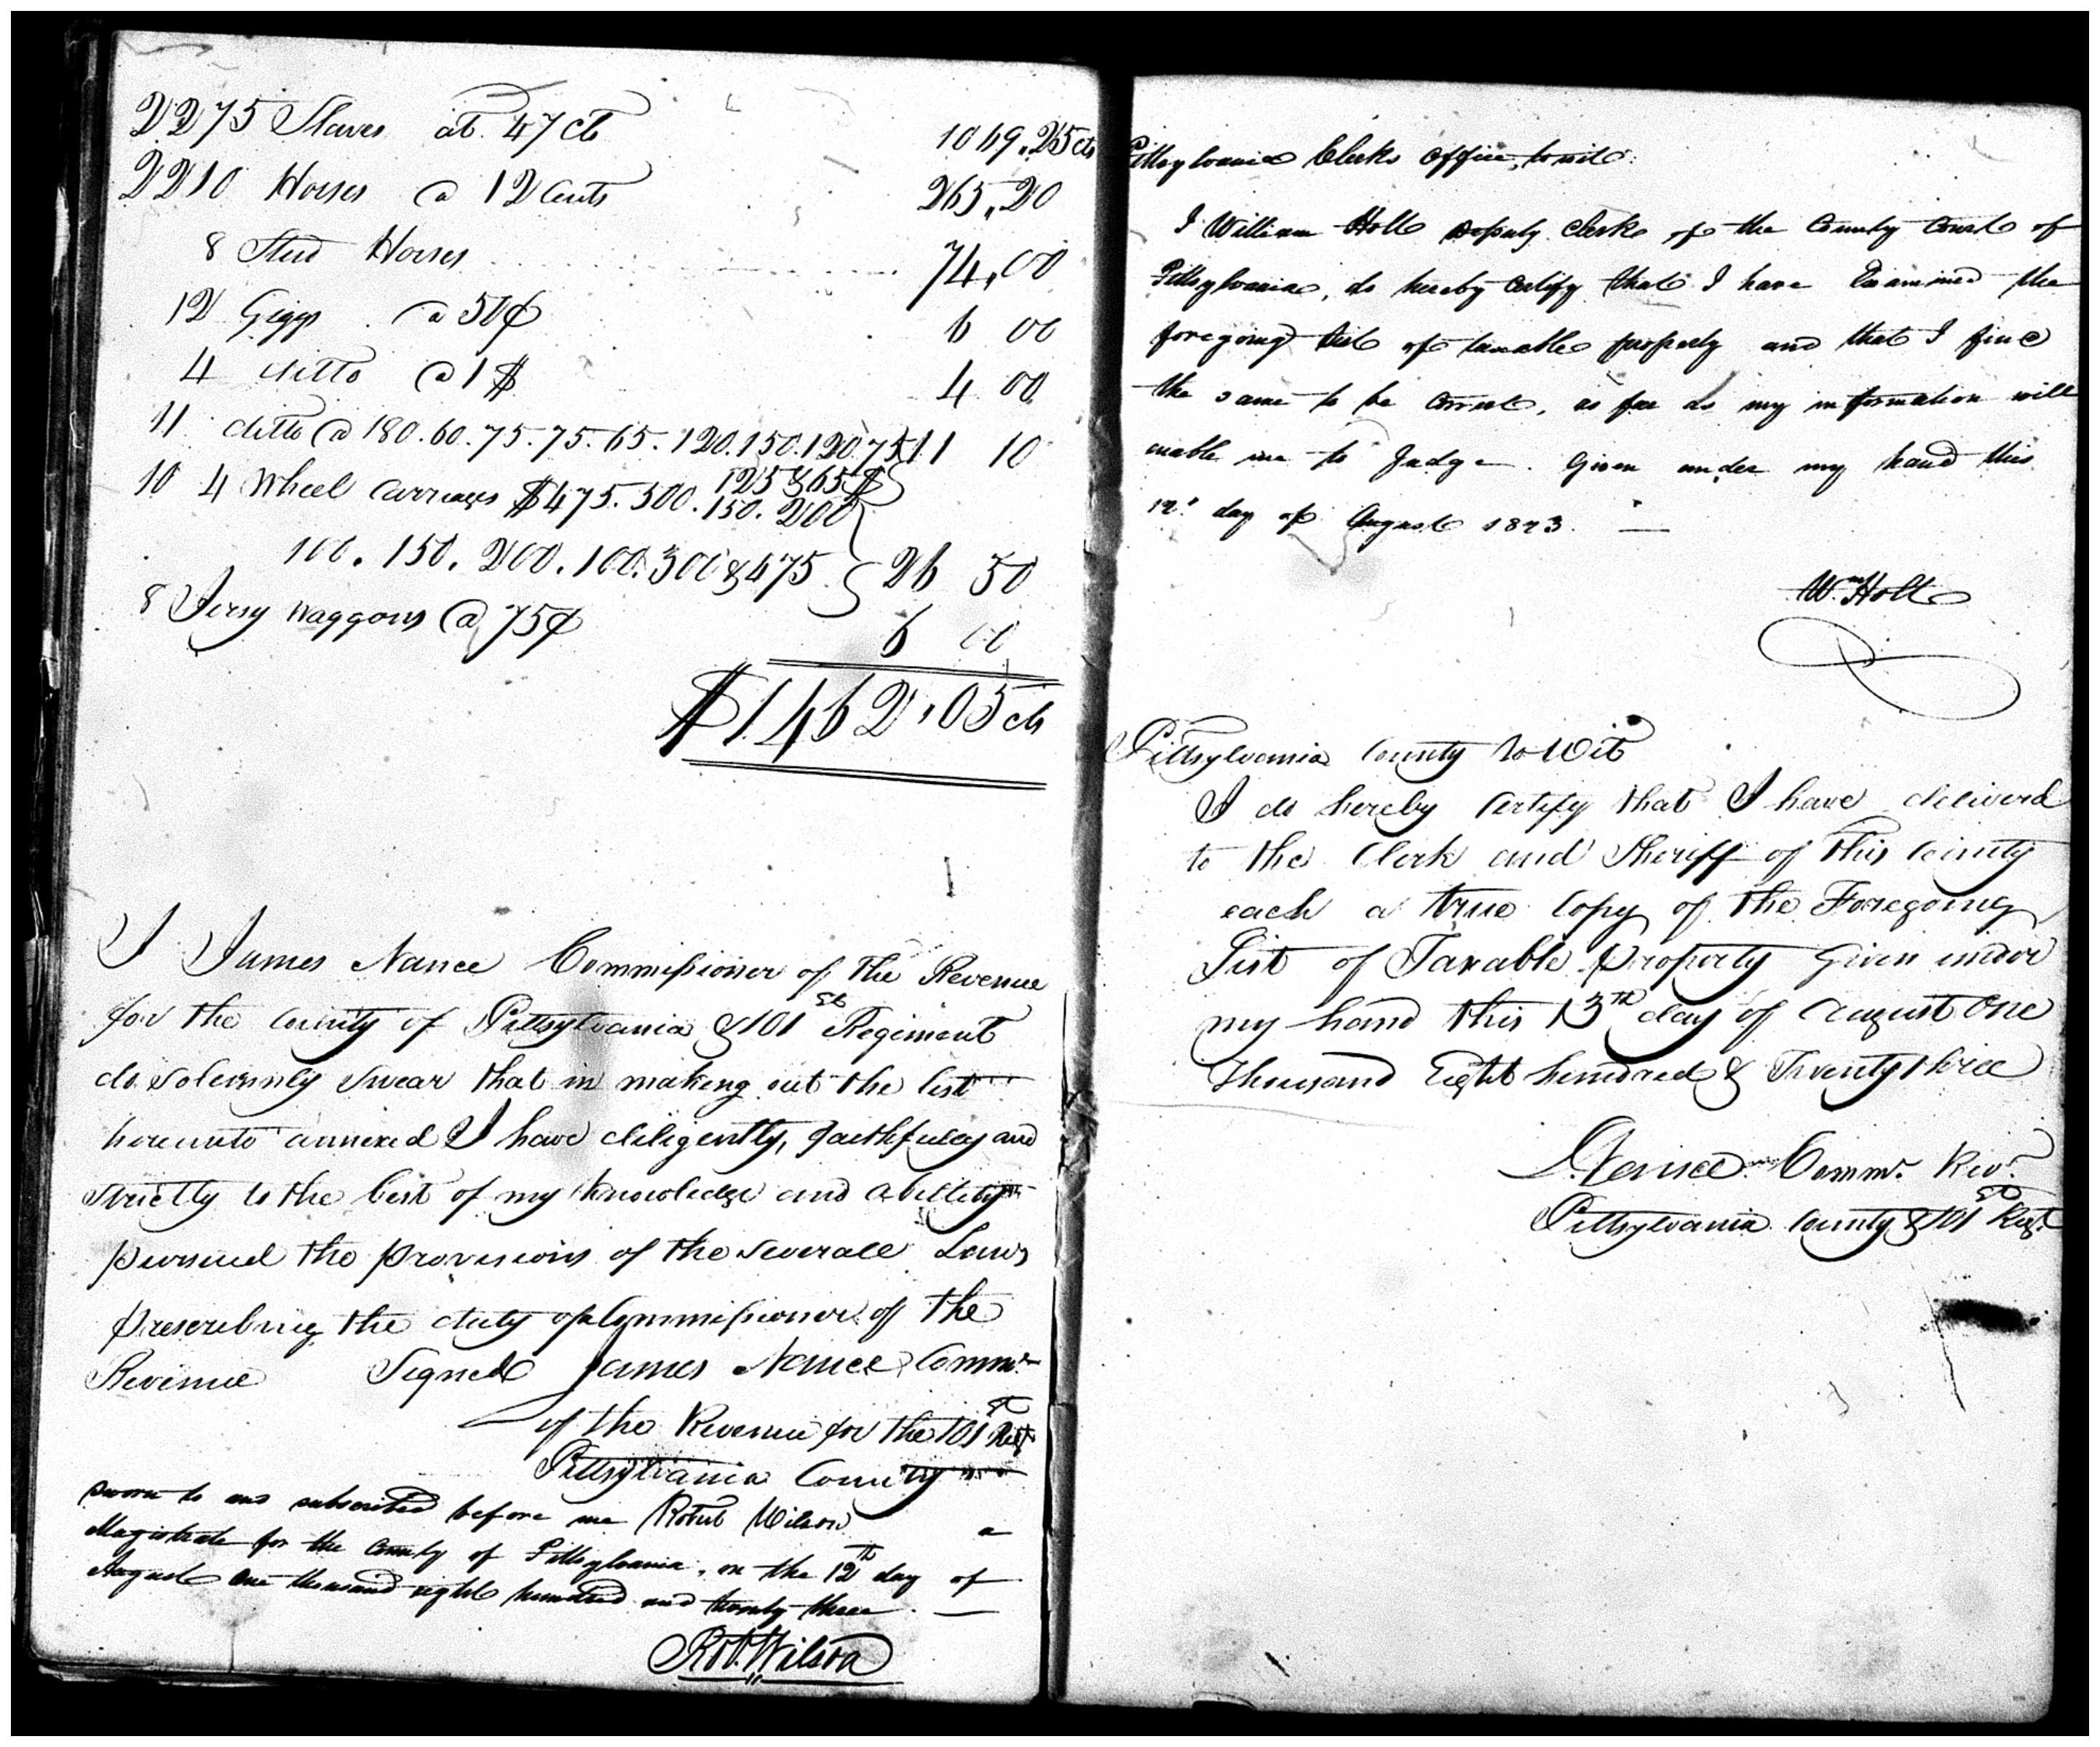 2275 Slaves at 47 ct 1069.25 cts
2210 Horses @ 12 Cents 265.20
8 Stud Horses 74.00
12 Giggs @ 50¢ 6 00
4 ditto @ 1 $ 4 00
11 ditto @ 180.60.75.75.65.120.150.120.75 11 10
125 & 65 $
10 4 Wheel Carriages $475.300.150.200
100.150.200.100.300 & 475 26 50
8 Jersy Waggons @ 75¢ 6 00
$1462.05 cts
I James Nance Commissioner of the Revenue
for the County of Pittsylvania & 101st Regiment
do solemnly swear that in making out the list
hereunto annexed I have diligently, faithfully and
strictly to the best of my knowledge and abillity
pursued the provisions of the severall Laws
prescribing the duty of Commissioner of the
Revenue Signed James Nance Commr
of the Revenue for the 101st Regt
Pittsylvania County
Sworn to and subscribed before me Robert Wilson a
Magistrate for the County of Pittsylvania, on the 12th day of
August One thousand eight hundred and twenty three.
Rob. Wilson
Pittsylvania Clerks Office, to wit:
I William Holt Deputy Clerk of the County Court of
Pittsylvania, do hereby Certify that I have Examined the
foregoing list of taxable property and that I find
the same to be Correct, as far as my information will
enable me to Judge. Given under my hand this
12th day of August 1823.
Wm Holt
Pittsylvania County to Wit
I do hereby Certify that I have deliverd
to the Clerk and Sheriff of this County
each a true Copy of the Foregoing
List of Taxable property Given under
my hand this 13th day of August One
Thousand Eight hundred & Twenty three
J. Nance Commr. Revr.
Pittsylvania County & 101st Regt.